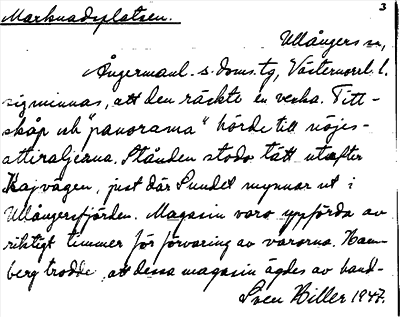 Marknadsplatsen. 3
Ullångers sn,
Ångermanl. s. doms. tg, Västernorrl. l.
sig minnas, att den räckte en vecka. Titt-
skåp och "panorama" hörde till nöjes-
attiraljerna. Stånden stodo tätt utefter
Kajvägen, just där Sundet mynnar ut i
Ullångersfjärden. Magasin voro uppförda av
riktigt timmer för förvaring av varorna. Ham-
berg trodde, att dessa magasin ägdes av hand-
Sven Hiller 1947.